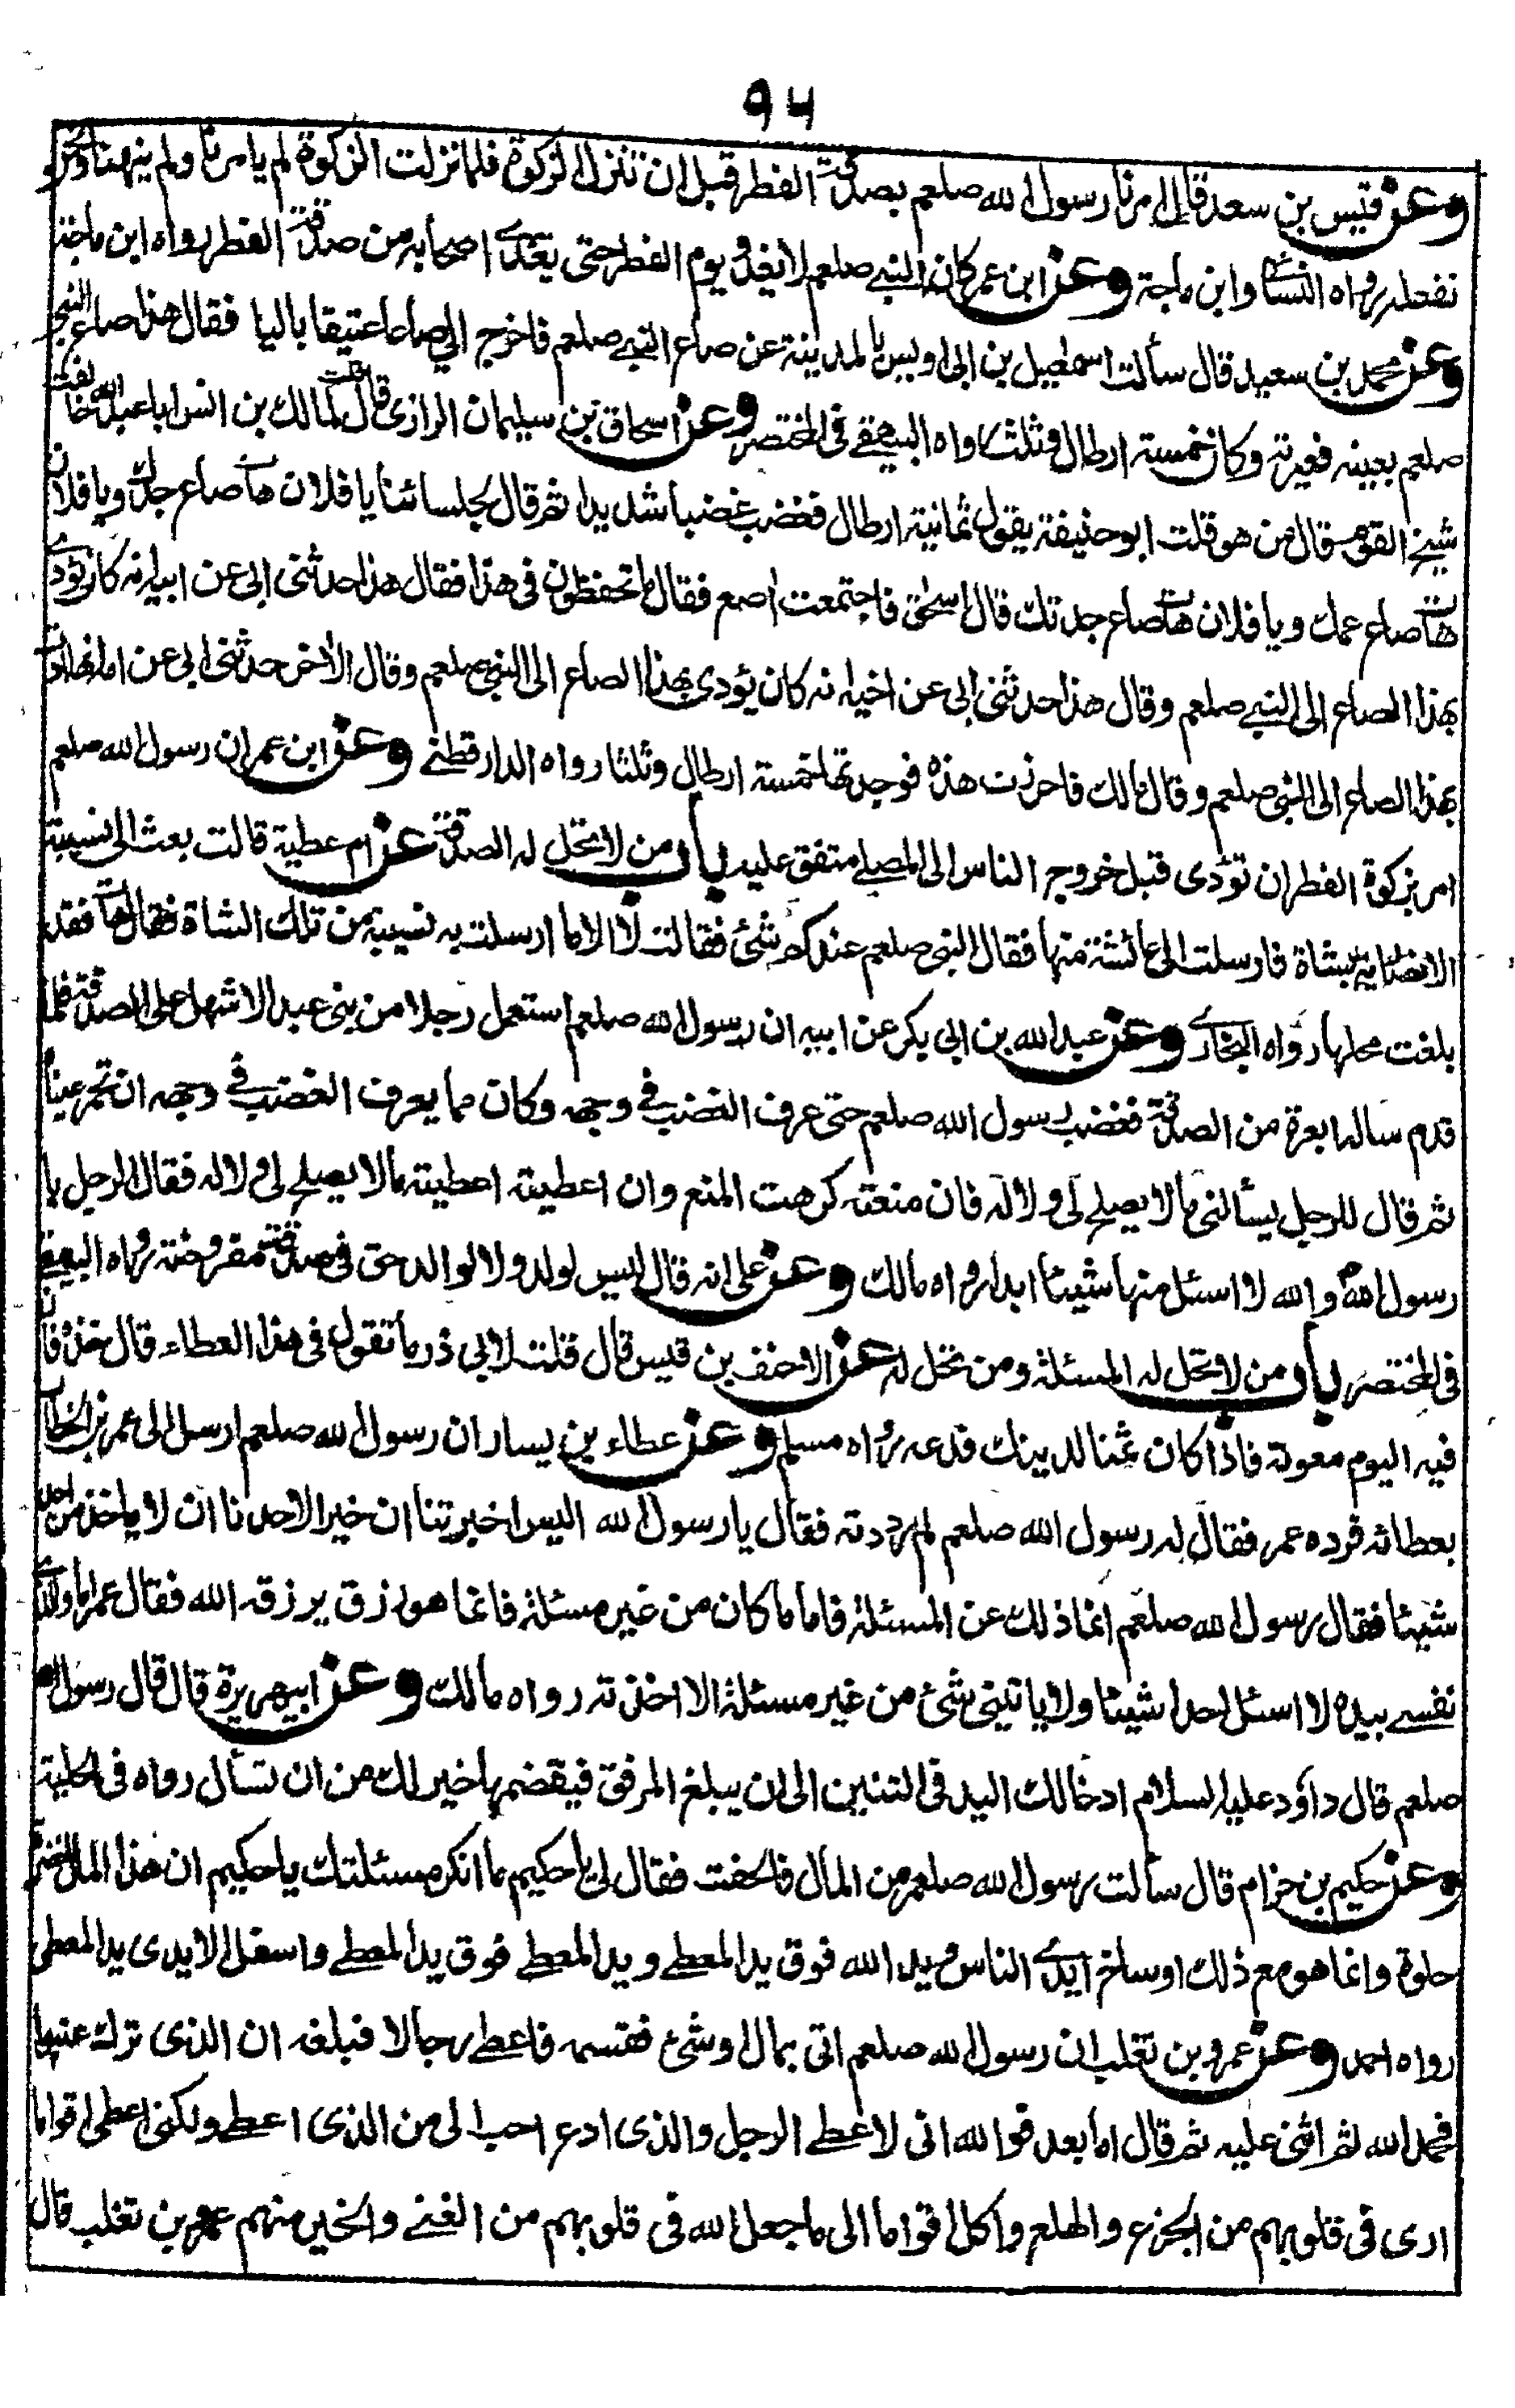 ٩٤
وعن قيس بن سعد قال امرنا رسول الله صلعم بصدقة الفطر قبل ان تنزل الزكوة فلما نزلت الزكوة لم يامرنا ولم ينهنا ونحن
نفعله رواه النسائي وابن ماجة وعن ابن عمر كان النبي صلعم لا يغدو يوم الفطر حتى يغدي اصحابه من صدقة الفطر رواه ابن ماجة
وعن محمد بن سعيد قال سألت اسمعيل بن ابى اويس بالمدينة عن صاع النبي صلعم فاخرج الي صاعا عتيقا باليا فقال هذا صاع النبي
صلعم بعينه فعيرته وكان خمسة ارطال وثلثا رواه البيهقي في المختصر وعن اسحاق بن سليمان الرازى قال قلت لمالك بن انس ابا عبد الله خالفت
شيخ القوم قال من هو قلت ابو حنيفة يقول ثمانية ارطال فغضب غضبا شديدا ثم قال لجلسائنا يا فلان هات صاع جدك ويا فلان
هات صاع عمك ويا فلان هات صاع جدتك قال اسحق فاجتمعت اصع فقال ما تحفظون في هذا فقال هذا حدثني ابي عن ابيه انه كان يؤدي
بهذا الصاع الى النبي صلعم وقال هذا حدثني ابى عن اخيه انه كان يؤدى بهذا الصاع الى النبي صلعم وقال الاخر حدثني ابى عن امه انها ادت
بهذا الصاع الى النبي صلعم وقال مالك فاحرزت هذه فوجدتها خمسة ارطال وثلثا رواه الدارقطني وعن ابن عمر ان رسول الله صلعم
امر بزكوة الفطر ان تؤدى قبل خروج الناس الى المصلے متفق عليه باب من لا تحل له الصدقة عن ام عطية قالت بعث الى نسيبة
الانصارية بشاة فارسلت الى عائشة منها فقال النبي صلعم عندكم شئ فقالت لا الا ما ارسلت به نسيبة من تلك الشاة فقال هات فقد
بلغت محلها رواه البخاري وعن عبد الله بن ابى بكر عن ابيه ان رسول الله صلعم استعمل رجلا من بنى عبد الاشهل على الصدقة فلما
قدم ساله ابعرة من الصدقة فغضب رسول الله صلعم حتى عرف الغضب في وجهه وكان مما يعرف الغضب في وجهه ان تحمر عيناه
ثم قال للرجل يسألنى ما لا يصلح لى ولا له فان منعته كرهت المنع وان اعطيته اعطيته ما لا يصلح لى ولا له فقال الرجل يا
رسول الله والله لا اسئل منها شيئا ابدا رواه مالك وعن على انه قال ليس لولد ولا لوالد حق في صدقة مفروضة رواه البيهقي
في المختصر باب من لا تحل له المسئلة ومن تحل له عن الاحنف بن قيس قال قلت لابي ذر ما تقول فى هذا العطاء قال خذه فان
فيه اليوم معونة فاذا كان ثمنا لدينك فدعه رواه مسلم وعن عطاء بن يسار ان رسول الله صلعم ارسل الى عمر بن الخطاب
بعطائه فرده عمر فقال له رسول الله صلعم لم رددته فقال يا رسول الله اليس اخبرتنا ان خيرا لاحدنا ان لا ياخذ من احد
شيئا فقال رسول الله صلعم انما ذلك عن المسئلة فاما ما كان من غير مسئلة فانما هو رزق يرزقه الله فقال عمر اما والذي
نفسے بيده لا اسئل احدا شيئا ولا ياتيني شئ من غير مسئلة الا اخذته رواه مالك وعن ابيهريرة قال قال رسول الله
صلعم قال داؤد عليه السلام ادخالك اليد في التنين الى ان يبلغ المرفق فيقضمها خير لك من ان تسأل رواه فى الحلية
وعن حكيم بن حزام قال سألت رسول الله صلعم من المال فالحفت فقال لى يا حكيم ما انكر مسئلتك يا حكيم ان هذا المال خضرة
حلوة وانما هو مع ذلك اوساخ ايدي الناس ويد الله فوق يد المعطے ويد المعطے فوق يد المعطے واسفل الايدى يد المعطى
رواه احمد وعن عمرو بن تغلب ان رسول الله صلعم اتى بمال اوشئ فقسمه فاعطے رجالا فبلغه ان الذى ترك عتبوا
فحمد الله ثم اثنى عليه ثم قال اما بعد فوالله انى لاعطے الرجل والذى ادع احب الى من الذى اعطے ولكنى اعطى اقواما
ارى فى قلوبهم من الجزع والهلع واكل اقواما الى ما جعل الله فى قلوبهم من الغنے والخير منهم عمرو بن تغلب قال